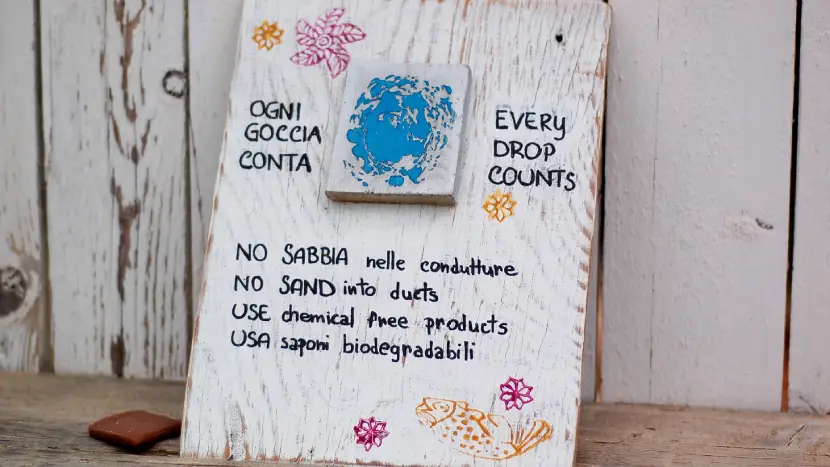 OGNI
GOCCIA
CONTA
EVERY
DROP
COUNTS
NO SABBIA nelle condutture
NO SAND into ducts
USE chemical free products
USA saponi biodegradabili